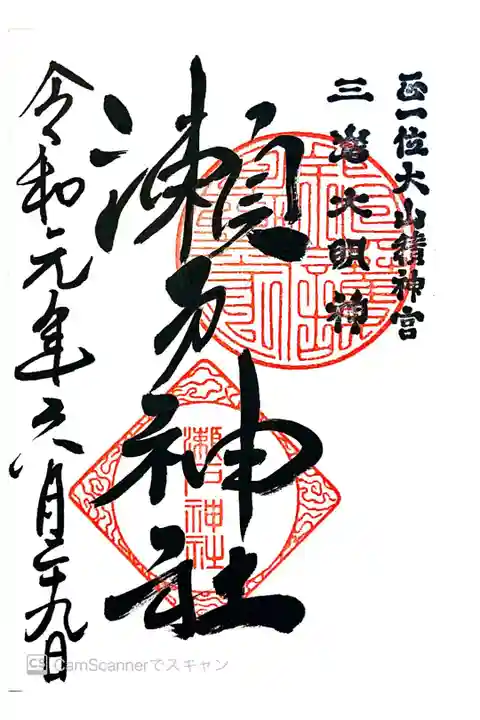 正一位大山積神宮
三嶌大明神
瀬戸神社
瀬戸神社
令和元年六月二十九日
CS CamScannerでスキャン